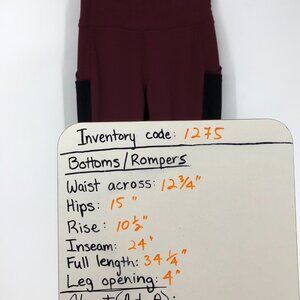 Inventory code: 1275
Bottoms/Rompers
Waist across: 12 3/4"
Hips: 15"
Rise: 10 1/2"
Inseam: 24"
Full length: 34 1/4"
Leg opening: 4"